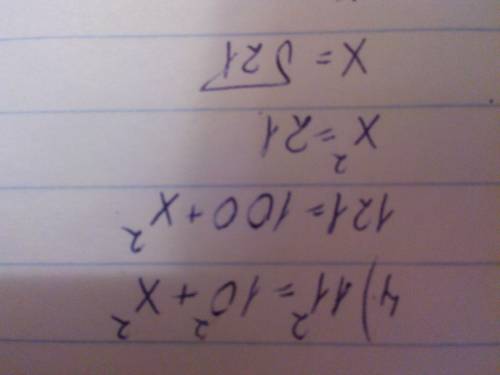 4) 11² = 10² + x²
121 = 100 + x²
x² = 21
x = √21